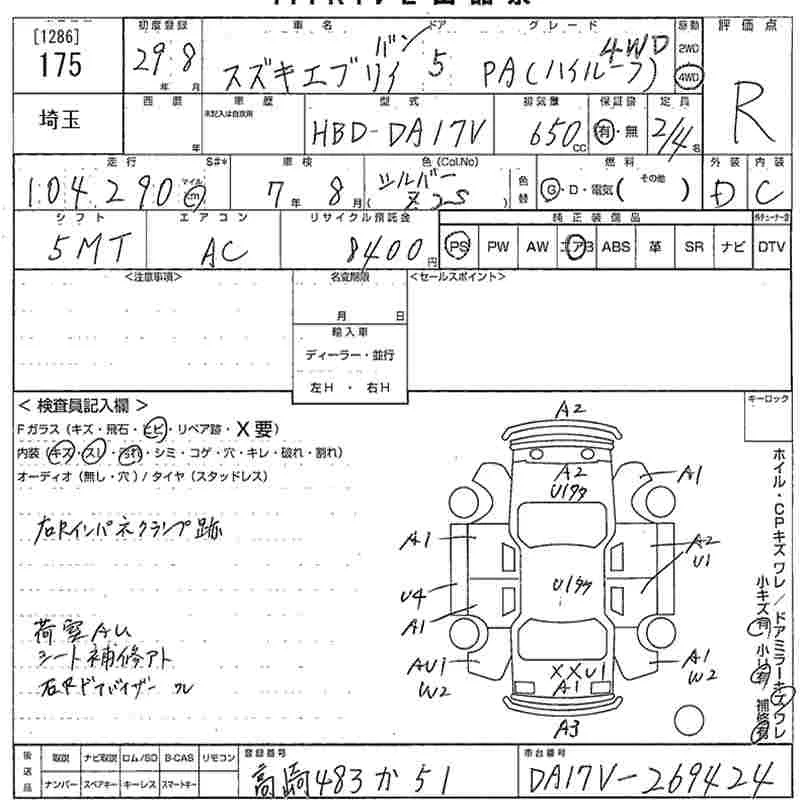 [1286]
175
初度登録 車名 ドア グレード 駆動 評価点
29 8 年 月
スズキエブリイ バン 5 PA(ハイルーフ) 4WD
2WD
4WD
R
埼玉
西暦 車歴 型式 排気量 保証書 定員
未記入は自家用
年 HBD-DA17V 650 CC 有・無 2/4 名
走行 S#* 車検 色(Col.No) 燃料 外装 内装
104,290 マイル km 7 年 8 月 シルバー ( Z2S ) 色替 G・D・電気( その他 ) D C
シフト エアコン リサイクル預託金 純正装備品
5MT AC 8400 円 PS PW AW エアB ABS 革 SR ナビ DTV
<注意事項> 名変期限 <セールスポイント>
月 日
輸入車
ディーラー・並行
左H ・ 右H
< 検査員記入欄 > キーロック
Fガラス(キズ・飛石・ヒビ・リペア跡・X要)
内装(キズ・スレ・汚れ・シミ・コゲ・穴・キレ・破れ・割れ)
オーディオ(無し・穴)/タイヤ(スタッドレス)
右Rインパネクランプ跡
荷室AU
シート補修アト
A2
A2
U1タタ
A1
A1
A2
U1
U4
U1タタ
A1
AU1
W2
A1
W2
XXU1
A1
A3
ホイル・CPキズワレ/ドアミラーキズワレ
小キズ有 小U有 補修有
後送品 取説 ナビ取説 ロム/SD B-CAS リモコン 登録番号 車台番号
ナンバー スペアキー キーレス スマートキー 高崎483か51 DA17V-269424